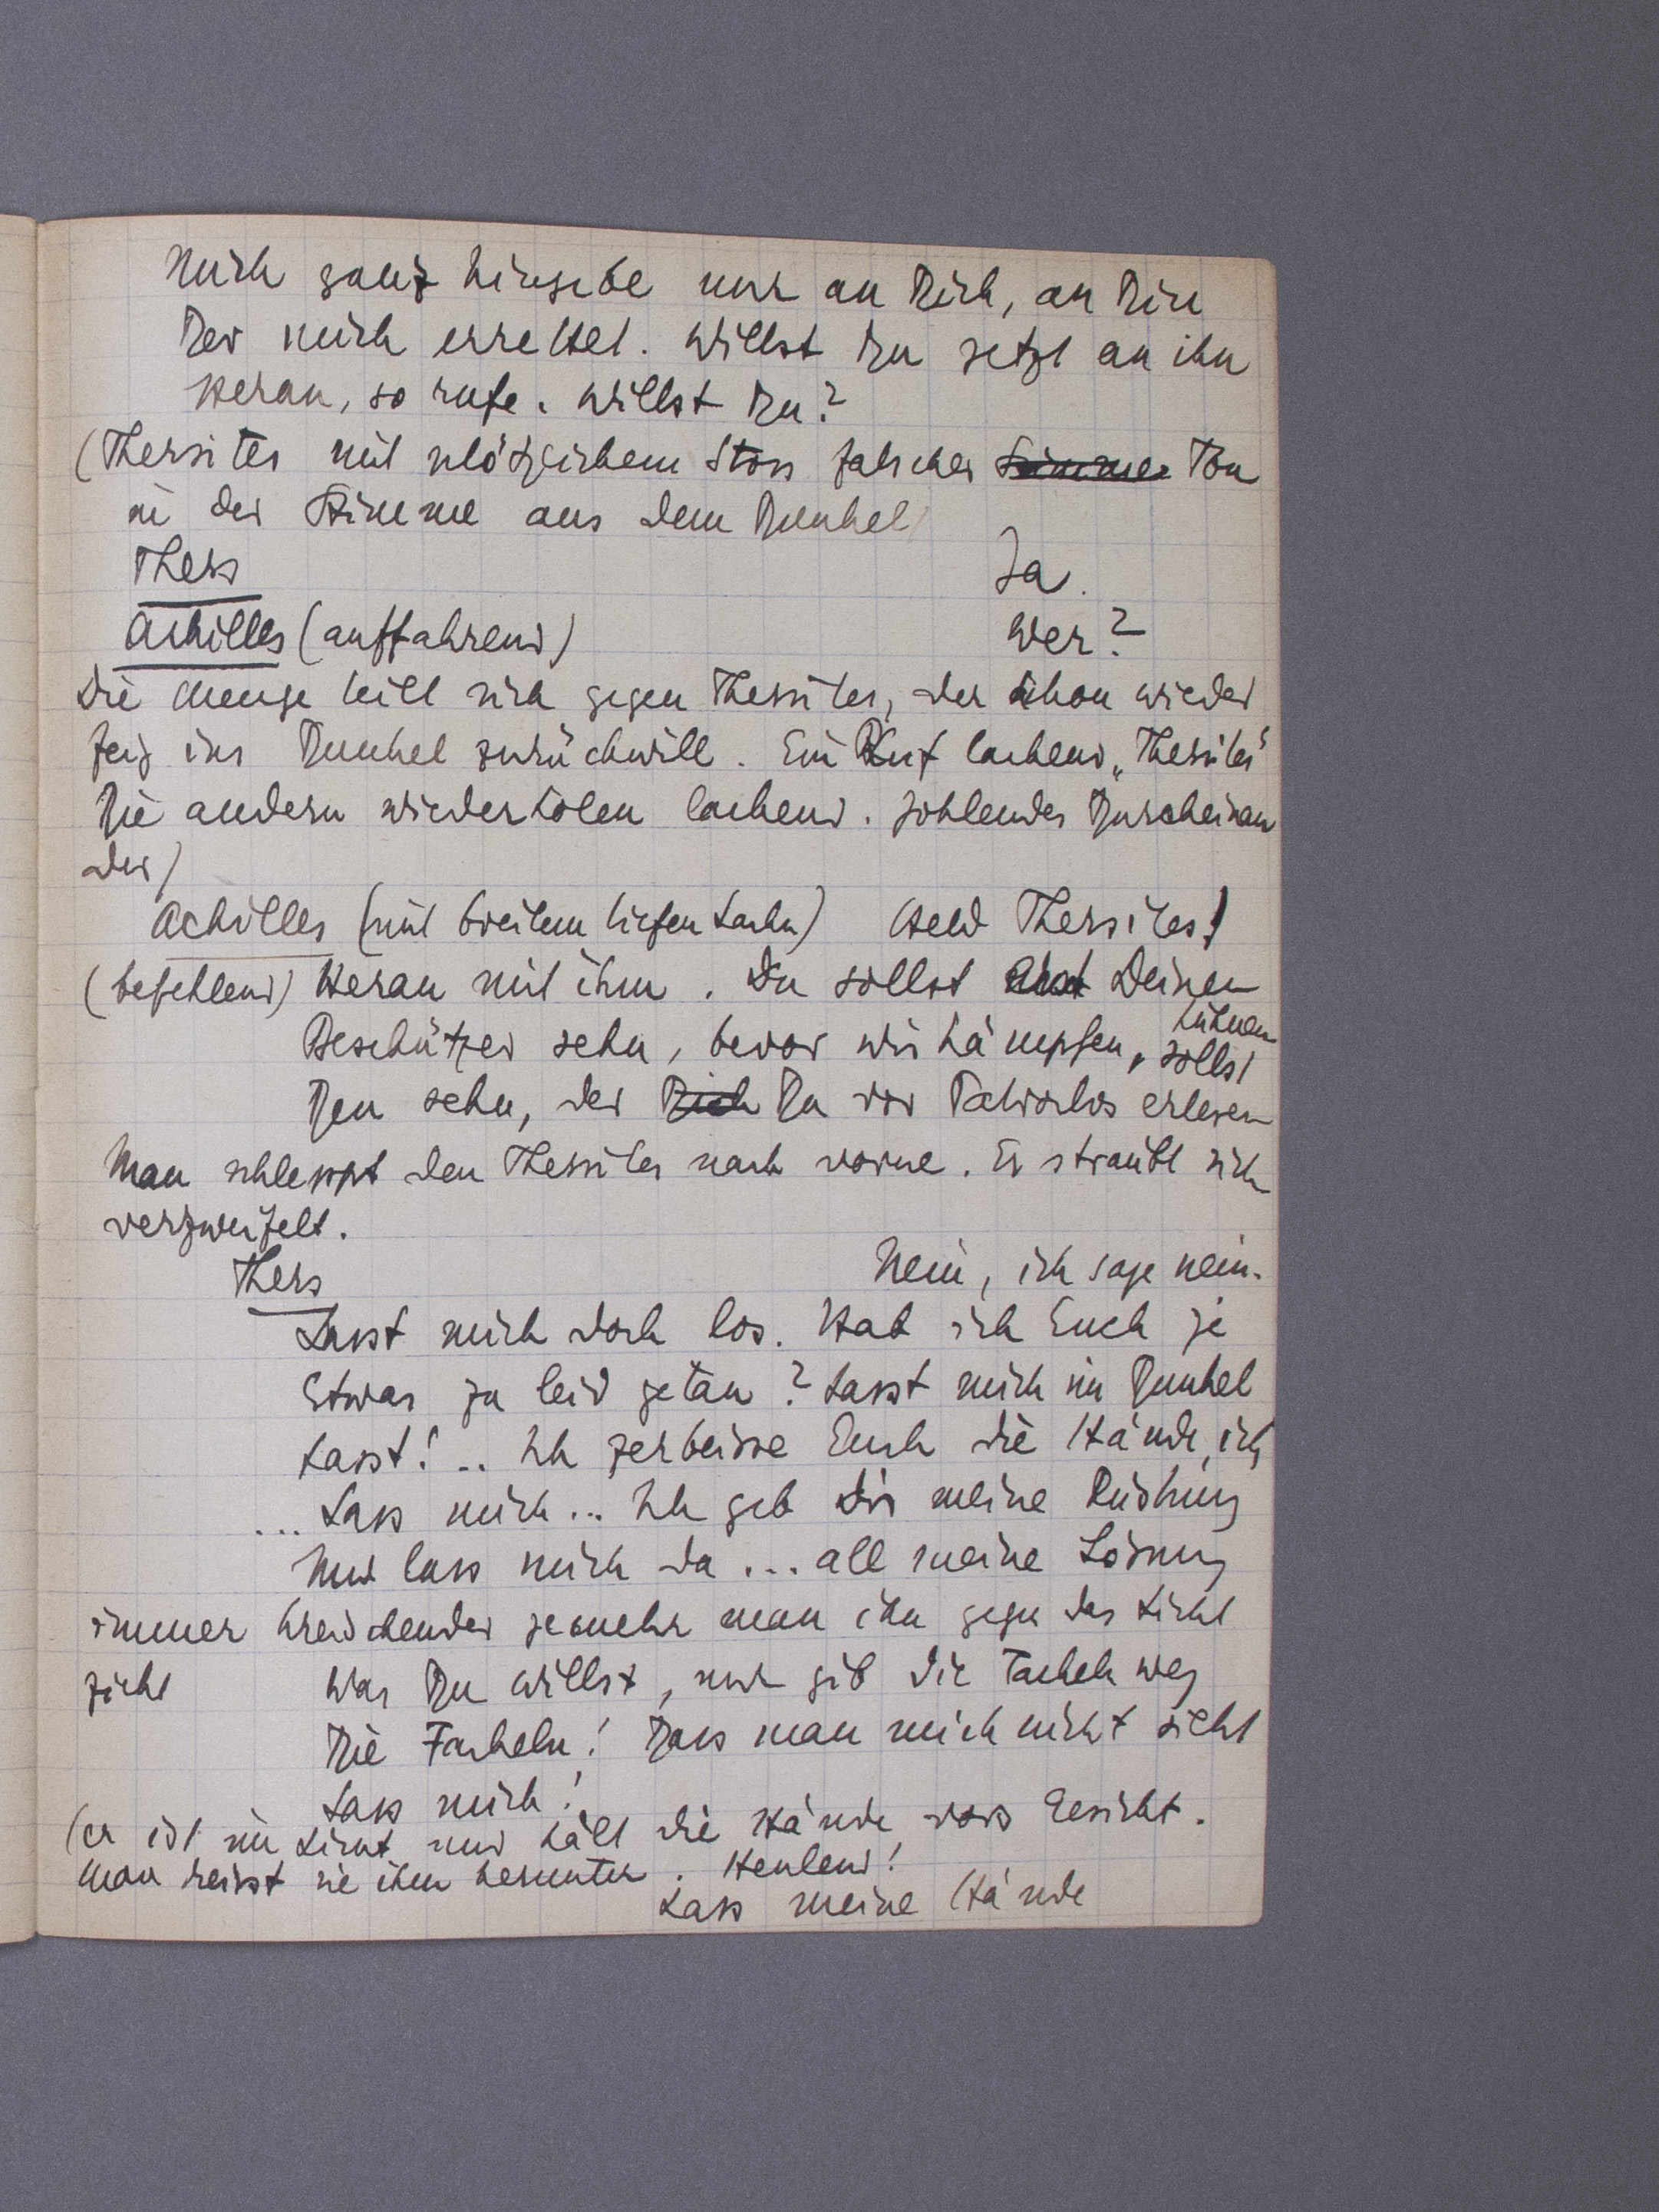 Mich ganz hingebe nur an Dich, an Din
Der mich errettet. Willst Du jetzt an ihn
Heran, so rufe. Willst Du?
(Thersites mit plötzlichem Stoss falscher Stimme Ton
in der Stimme aus dem Dunkel
Thers Ja.
Achilles (auffahrend) Wer?
Die Menge teilt sich gegen Thersites, der schon wieder
feig ins Dunkel zurückwill. Ein Ruf lachend „Thersites"
Die andern wiederholen lachend. Johlendes Durcheinan
der)
Achilles (mit breitem tiefen Lachn) Held Thersites!
(befehlend) Heran mit ihm. Du sollst Deinen
kühnen
Beschützer sehn, bevor wir kämpfen, sollst
Den sehn, der Dich Du vor Patroklos erlesen
Man schleppt den Thersites nach vorne. Er sträubt sich
verzweifelt.
Thers Nein, ich sage nein.
Lasst mich doch los. Hab ich Euch je
Etwas zu leid getan? Lasst mich im Dunkel
Lasst! .. Ich zerbeisse Euch die Hände, ich
... Lass mich... Ich geb dir meine Rüstung
Nur lass mich da ... all meine Löhnung
immer kreischender jemehr man ihn gegen das Licht
zieht Was Du willst, nur gib die Fackeln weg
Die Fackeln! Dass man mich nicht sieht
Lass mich!
(er ist im Licht und hält die Hände vors Gesicht.
Man reisst sie ihm herunter. Heulend!
Lass meine Hände